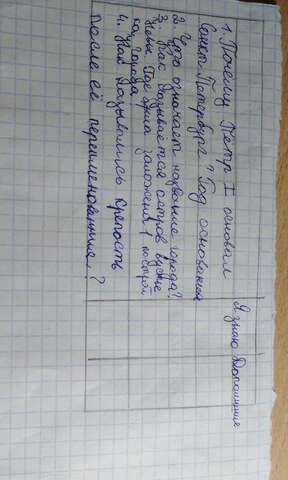 1. Почему Петр I основал
Санкт-Петербург? Год основания
2. Что означает название города?
3. Как называется остров в устье
Невы где была заложена 1 построй
ка города
4. Как называлась крепость
после её переименования?
Я знаю Дополнение